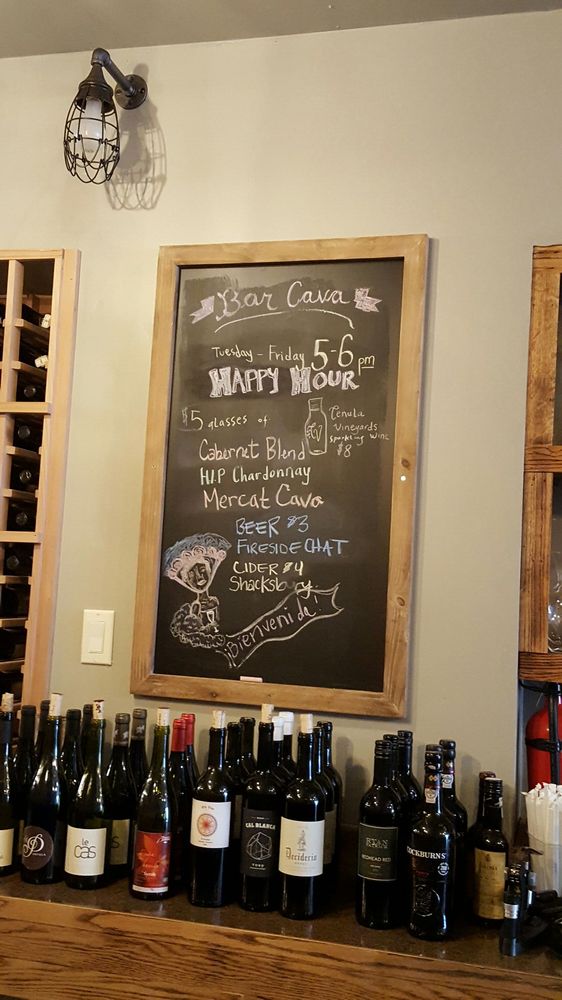 Bar Cava
Tuesday - Friday 5-6 pm
HAPPY HOUR
$5 glasses of
Tenula
Vineyards
sparkling wine
$8
Cabernet Blend
H.I.P Chardonnay
Mercat Cava
BEER $3
FIRESIDE CHAT
CIDER $4
Shacksbury
¡Bienvenida!
le
CAS
CAL BLANCA
Decideria
RYAN
REDHEAD RED
COCKBURN'S